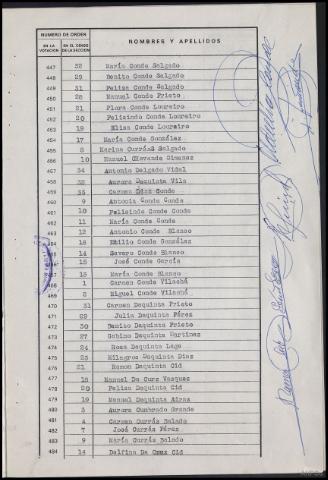 NUMERO DE ORDEN
EN LA VOTACION EN EL CENSO DE LA SECCION NOMBRES Y APELLIDOS
447 32 María Conde Salgado
448 29 Benito Conde Salgado
449 31 Felisa Conde Salgado
450 28 Manuel Conde Prieto
451 21 Flora Conde Loureiro
452 20 Felisindo Conde Loureiro
453 19 Elisa Conde Loureiro
454 17 María Conde González
455 8 Marina Currás Salgado
456 10 Manuel Gimenez
457 34 Antonio Delgado Vidal
458 32 Aurora Dequinta Vila
459 35 Carmen Diaz Conde
460 9 Antonia Conde Conde
461 10 Felisindo Conde Conde
462 11 María Conde Conde
463 12 Antonio Conde Blanco
464 18 Emilio Conde González
465 14 Severo Conde Blanco
466 16 José Conde García
467 15 María Conde Blanco
468 1 Carmen Conde Vilachá
469 2 Miguel Conde Vilachá
470 31 Carmen Dequinta Prieto
471 29 Julia Dequinta Pérez
472 30 Benito Dequinta Prieto
473 27 Gabino Dequinta Martinez
474 24 Rosa Dequinta Lage
475 23 Milagros Dequinta Diaz
476 21 Ramon Dequinta Cid
477 18 Manuel Da Curz Vasquez
478 20 Felisa Dequinta Cid
479 19 Manuel Dequinta Aires
480 3 Aurora Cumbrado Grande
481 4 Carmen Currás Balado
482 7 José Currás Pérez
483 9 María Currás Balado
484 14 Delfina Da Cruz Cid